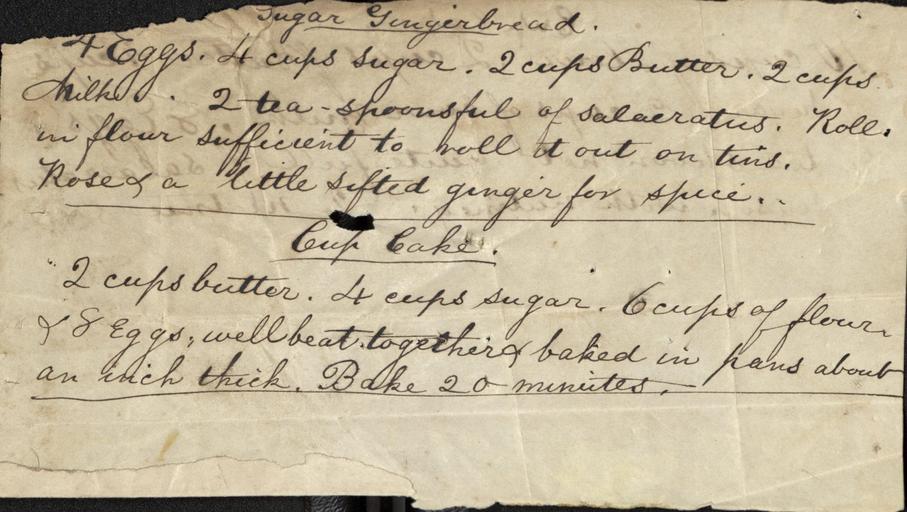 Sugar Gingerbread.
4 Eggs. 4 cups sugar. 2 cups Butter. 2 cups
Milk. 2 tea-spoonsful of salaeratus. Roll.
in flour sufficient to roll it out on tins.
Rose & a little sifted ginger for spice..
Cup Cake.
2 cups butter. 4 cups sugar. 6 cups of flour
& 8 Eggs; well beat together & baked in pans about
an inch thick. Bake 20 minutes.